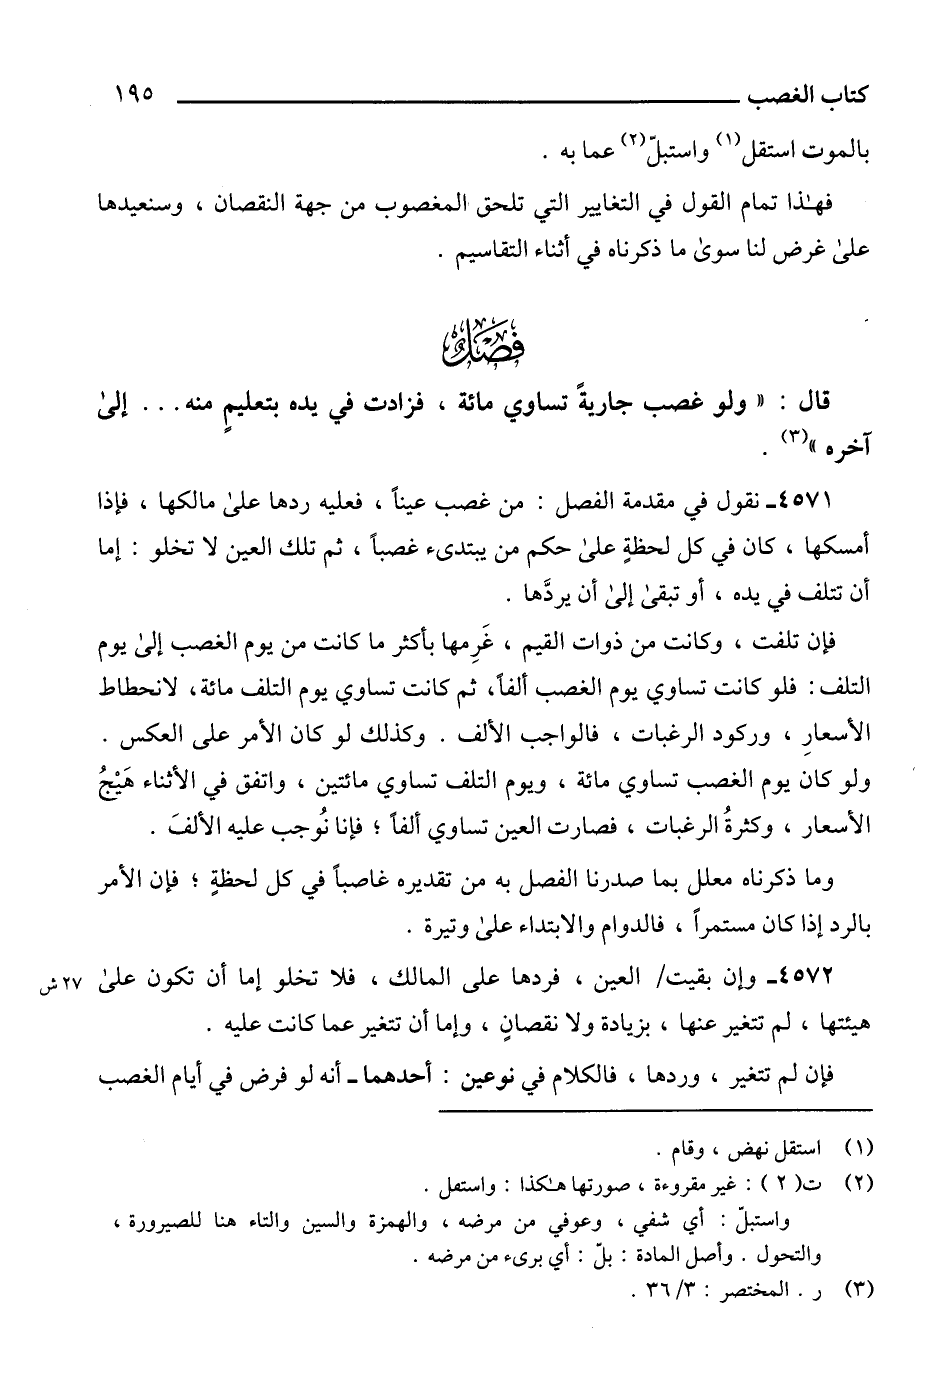 كتاب الغصب ١٩٥
بالموت استقل(١) واستبلّ(٢) عما به .
فهـٰذا تمام القول في التغايير التي تلحق المغصوب من جهة النقصان ، وسنعيدها
علىٰ غرض لنا سوىٰ ما ذكرناه في أثناء التقاسيم .
فصل
قال : « ولو غصب جاريةً تساوي مائة ، فزادت في يده بتعليمٍ منه . . . إلىٰ
آخره »(٣) .
٤٥٧١ـ نقول في مقدمة الفصل : من غصب عيناً ، فعليه ردها علىٰ مالكها ، فإذا
أمسكها ، كان في كل لحظةٍ علىٰ حكم من يبتدىء غصباً ، ثم تلك العين لا تخلو : إما
أن تتلف في يده ، أو تبقىٰ إلىٰ أن يردَّها .
فإن تلفت ، وكانت من ذوات القيم ، غَرِمها بأكثر ما كانت من يوم الغصب إلىٰ يوم
التلف : فلو كانت تساوي يوم الغصب ألفاً، ثم كانت تساوي يوم التلف مائة، لانحطاط
الأسعارِ ، وركود الرغبات ، فالواجب الألف . وكذلك لو كان الأمر على العكس .
ولو كان يوم الغصب تساوي مائة ، ويوم التلف تساوي مائتين ، واتفق في الأثناء هَيْجُ
الأسعار ، وكثرةُ الرغبات ، فصارت العين تساوي ألفاً ؛ فإنا نُوجب عليه الألفَ .
وما ذكرناه معلل بما صدرنا الفصل به من تقديره غاصباً في كل لحظةٍ ؛ فإن الأمر
بالرد إذا كان مستمراً ، فالدوام والابتداء علىٰ وتيرة .
٤٥٧٢ـ وإن بقيت/ العين ، فردها على المالك ، فلا تخلو إما أن تكون علىٰ ٢٧ ش
هيئتها ، لم تتغير عنها ، بزيادة ولا نقصانٍ ، وإما أن تتغير عما كانت عليه .
فإن لم تتغير ، وردها ، فالكلام في نوعين : أحدهما ـ أنه لو فرض في أيام الغصب
(١) استقل نهض ، وقام .
(٢) ت( ٢ ) : غير مقروءة ، صورتها هـٰكذا : واستفل .
واستبلّ : أي شفي ، وعوفي من مرضه ، والهمزة والسين والتاء هنا للصيرورة ،
والتحول . وأصل المادة : بلّ : أي برىء من مرضه .
(٣) ر . المختصر : ٣/ ٣٦ .